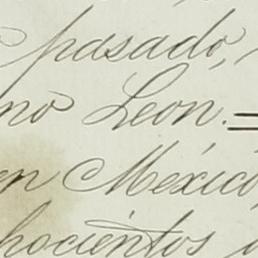 pasado,
no Leon.=
en México,
hocientos